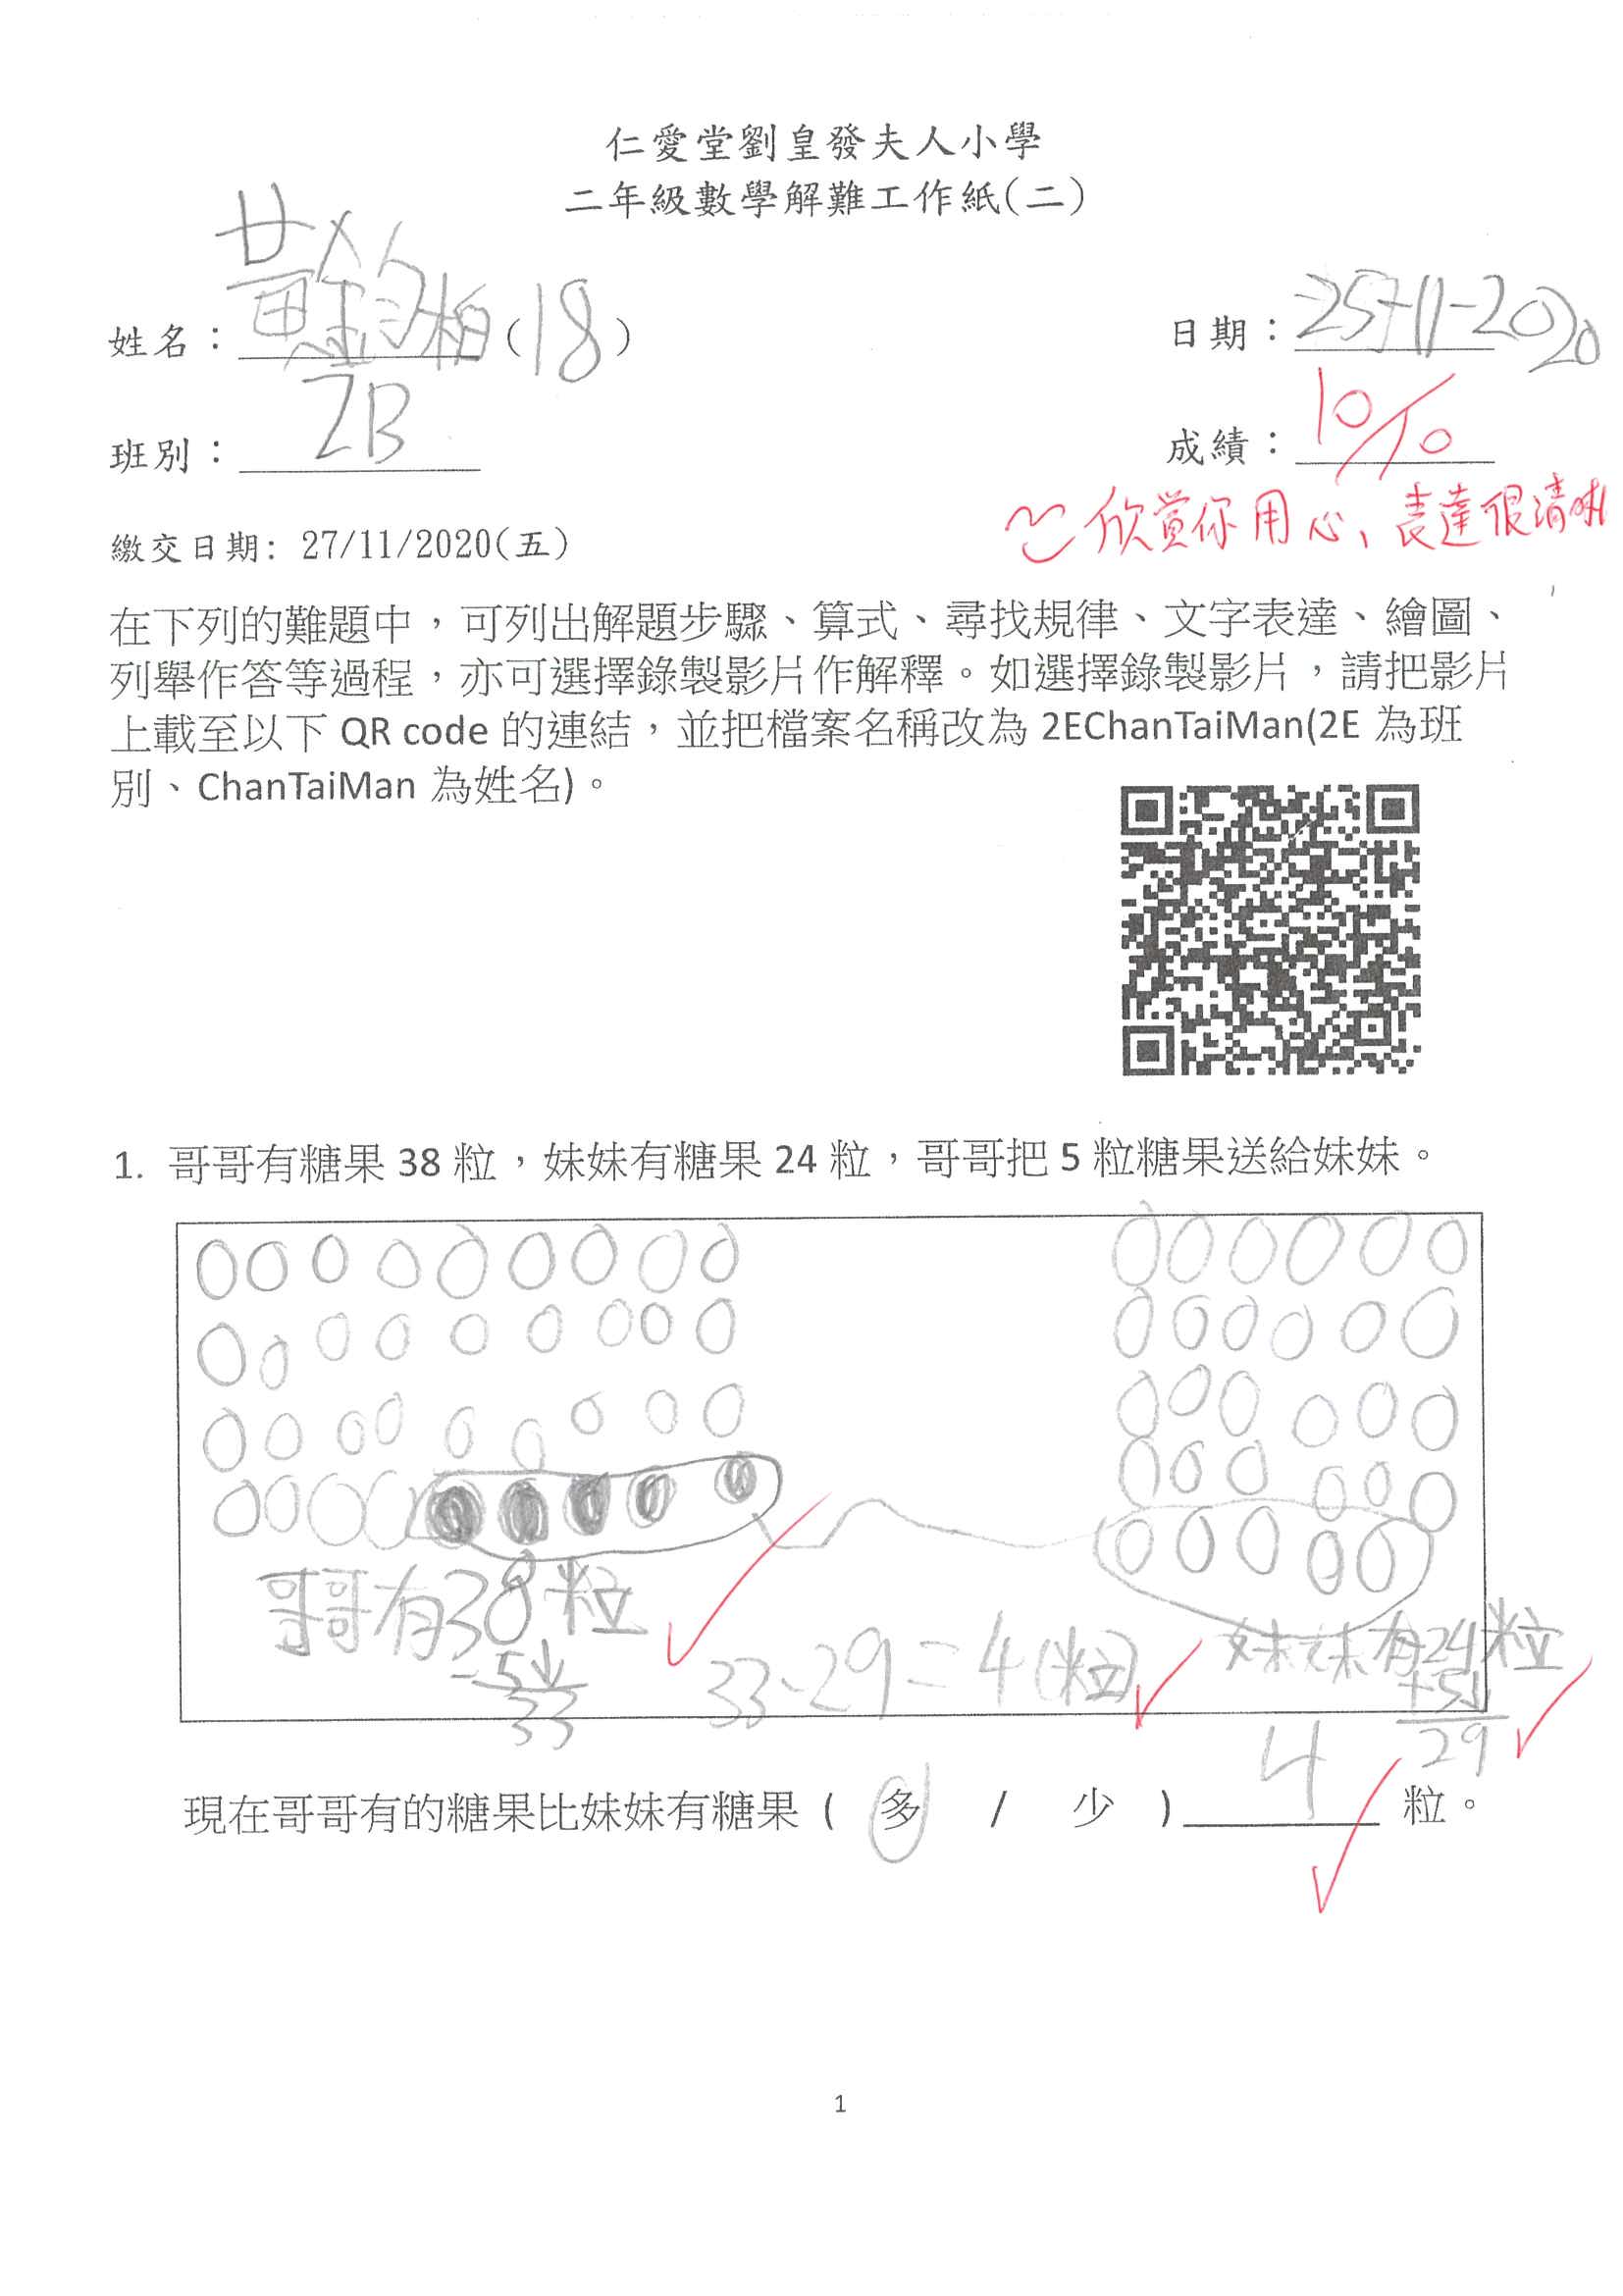 仁愛堂劉皇發夫人小學
二年級數學解難工作紙(二)
姓名：黃鈞柏(18)
日期：25-11-2020
班別：2B
成績：10/10
欣賞你用心、表達很清晰
繳交日期: 27/11/2020(五)
在下列的難題中，可列出解題步驟、算式、尋找規律、文字表達、繪圖、
列舉作答等過程，亦可選擇錄製影片作解釋。如選擇錄製影片，請把影片
上載至以下 QR code 的連結，並把檔案名稱改為 2EChanTaiMan(2E 為班
別、ChanTaiMan 為姓名)。
1. 哥哥有糖果 38 粒，妹妹有糖果 24 粒，哥哥把 5 粒糖果送給妹妹。
哥哥有38粒
-5
33
33-29=4(粒)
妹妹有24粒
+5
29
現在哥哥有的糖果比妹妹有糖果 ( 多 / 少 ) 4 粒。
1